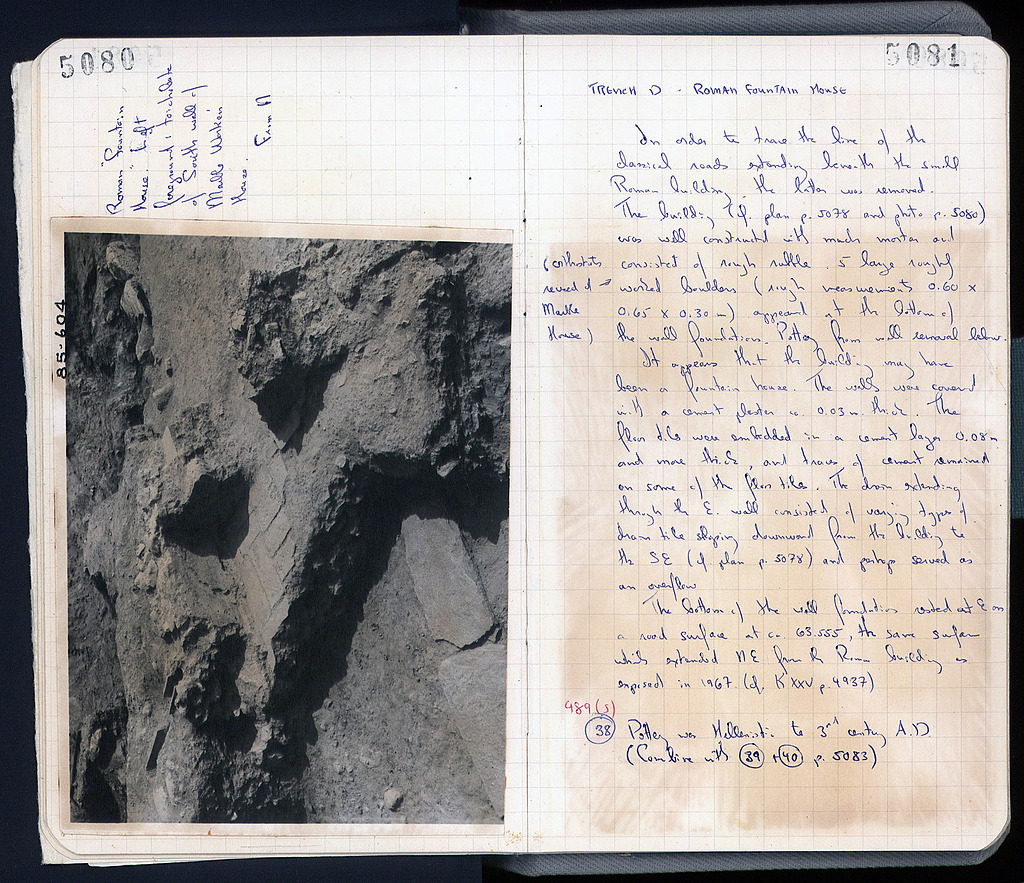 5080
Roman "Fountain
House" left
foreground; orthostate
of South wall of
Marble Workers'
House.
From N
85-604
5081
TRENCH D - ROMAN FOUNTAIN HOUSE
In order to trace the line of the
classical roads extending beneath the small
Roman building, the latter was removed.
The building (cf. plan p. 5078 and photo p. 5080)
was well constructed with much mortar and
consisted of rough rubble. 5 large roughly
worked boulders (rough measurements 0.60 x
0.65 x 0.30 m) appeared at the bottom of
the wall foundations. Pottery from wall removal below.
(orthostats
reused of
Marble
House)
It appears that the building may have
been a fountain house. The walls were covered
with a cement plaster ca. 0.03 m. thick. The
floor tiles were embedded in a cement layer 0.08 m
and more thick, and traces of cement remained
on some of the floor tiles. The drain extending
through the E. wall consisted of varying types of
drain tile sloping downward from the building to
the SE (cf. plan p. 5078) and perhaps served as
an overflow
The bottom of the wall foundations rested at E on
a road surface at ca. 63.555, the same surface
which extended NE from the Roman building as
exposed in 1967. (cf. K XXV p. 4937)
489(s)
38 Pottery was Hellenistic to 3rd century A.D.
(Combine with 39 + 40 p. 5083)